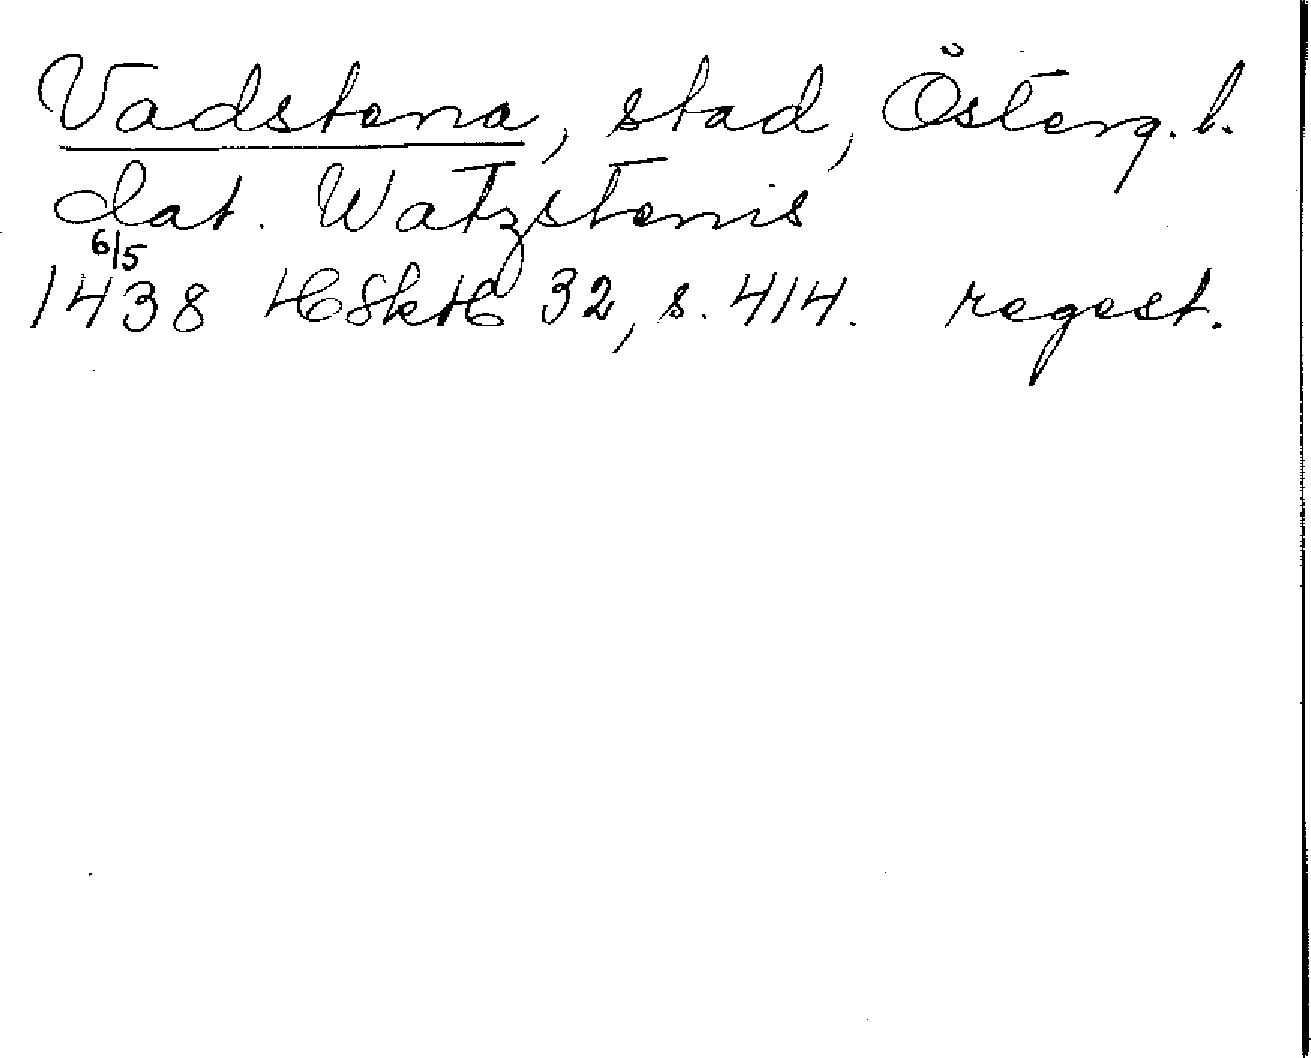 Vadstena, stad, Österg. l.
dat. Watzstenis
6/5
1438 HSkH 32, s. 414. regest.